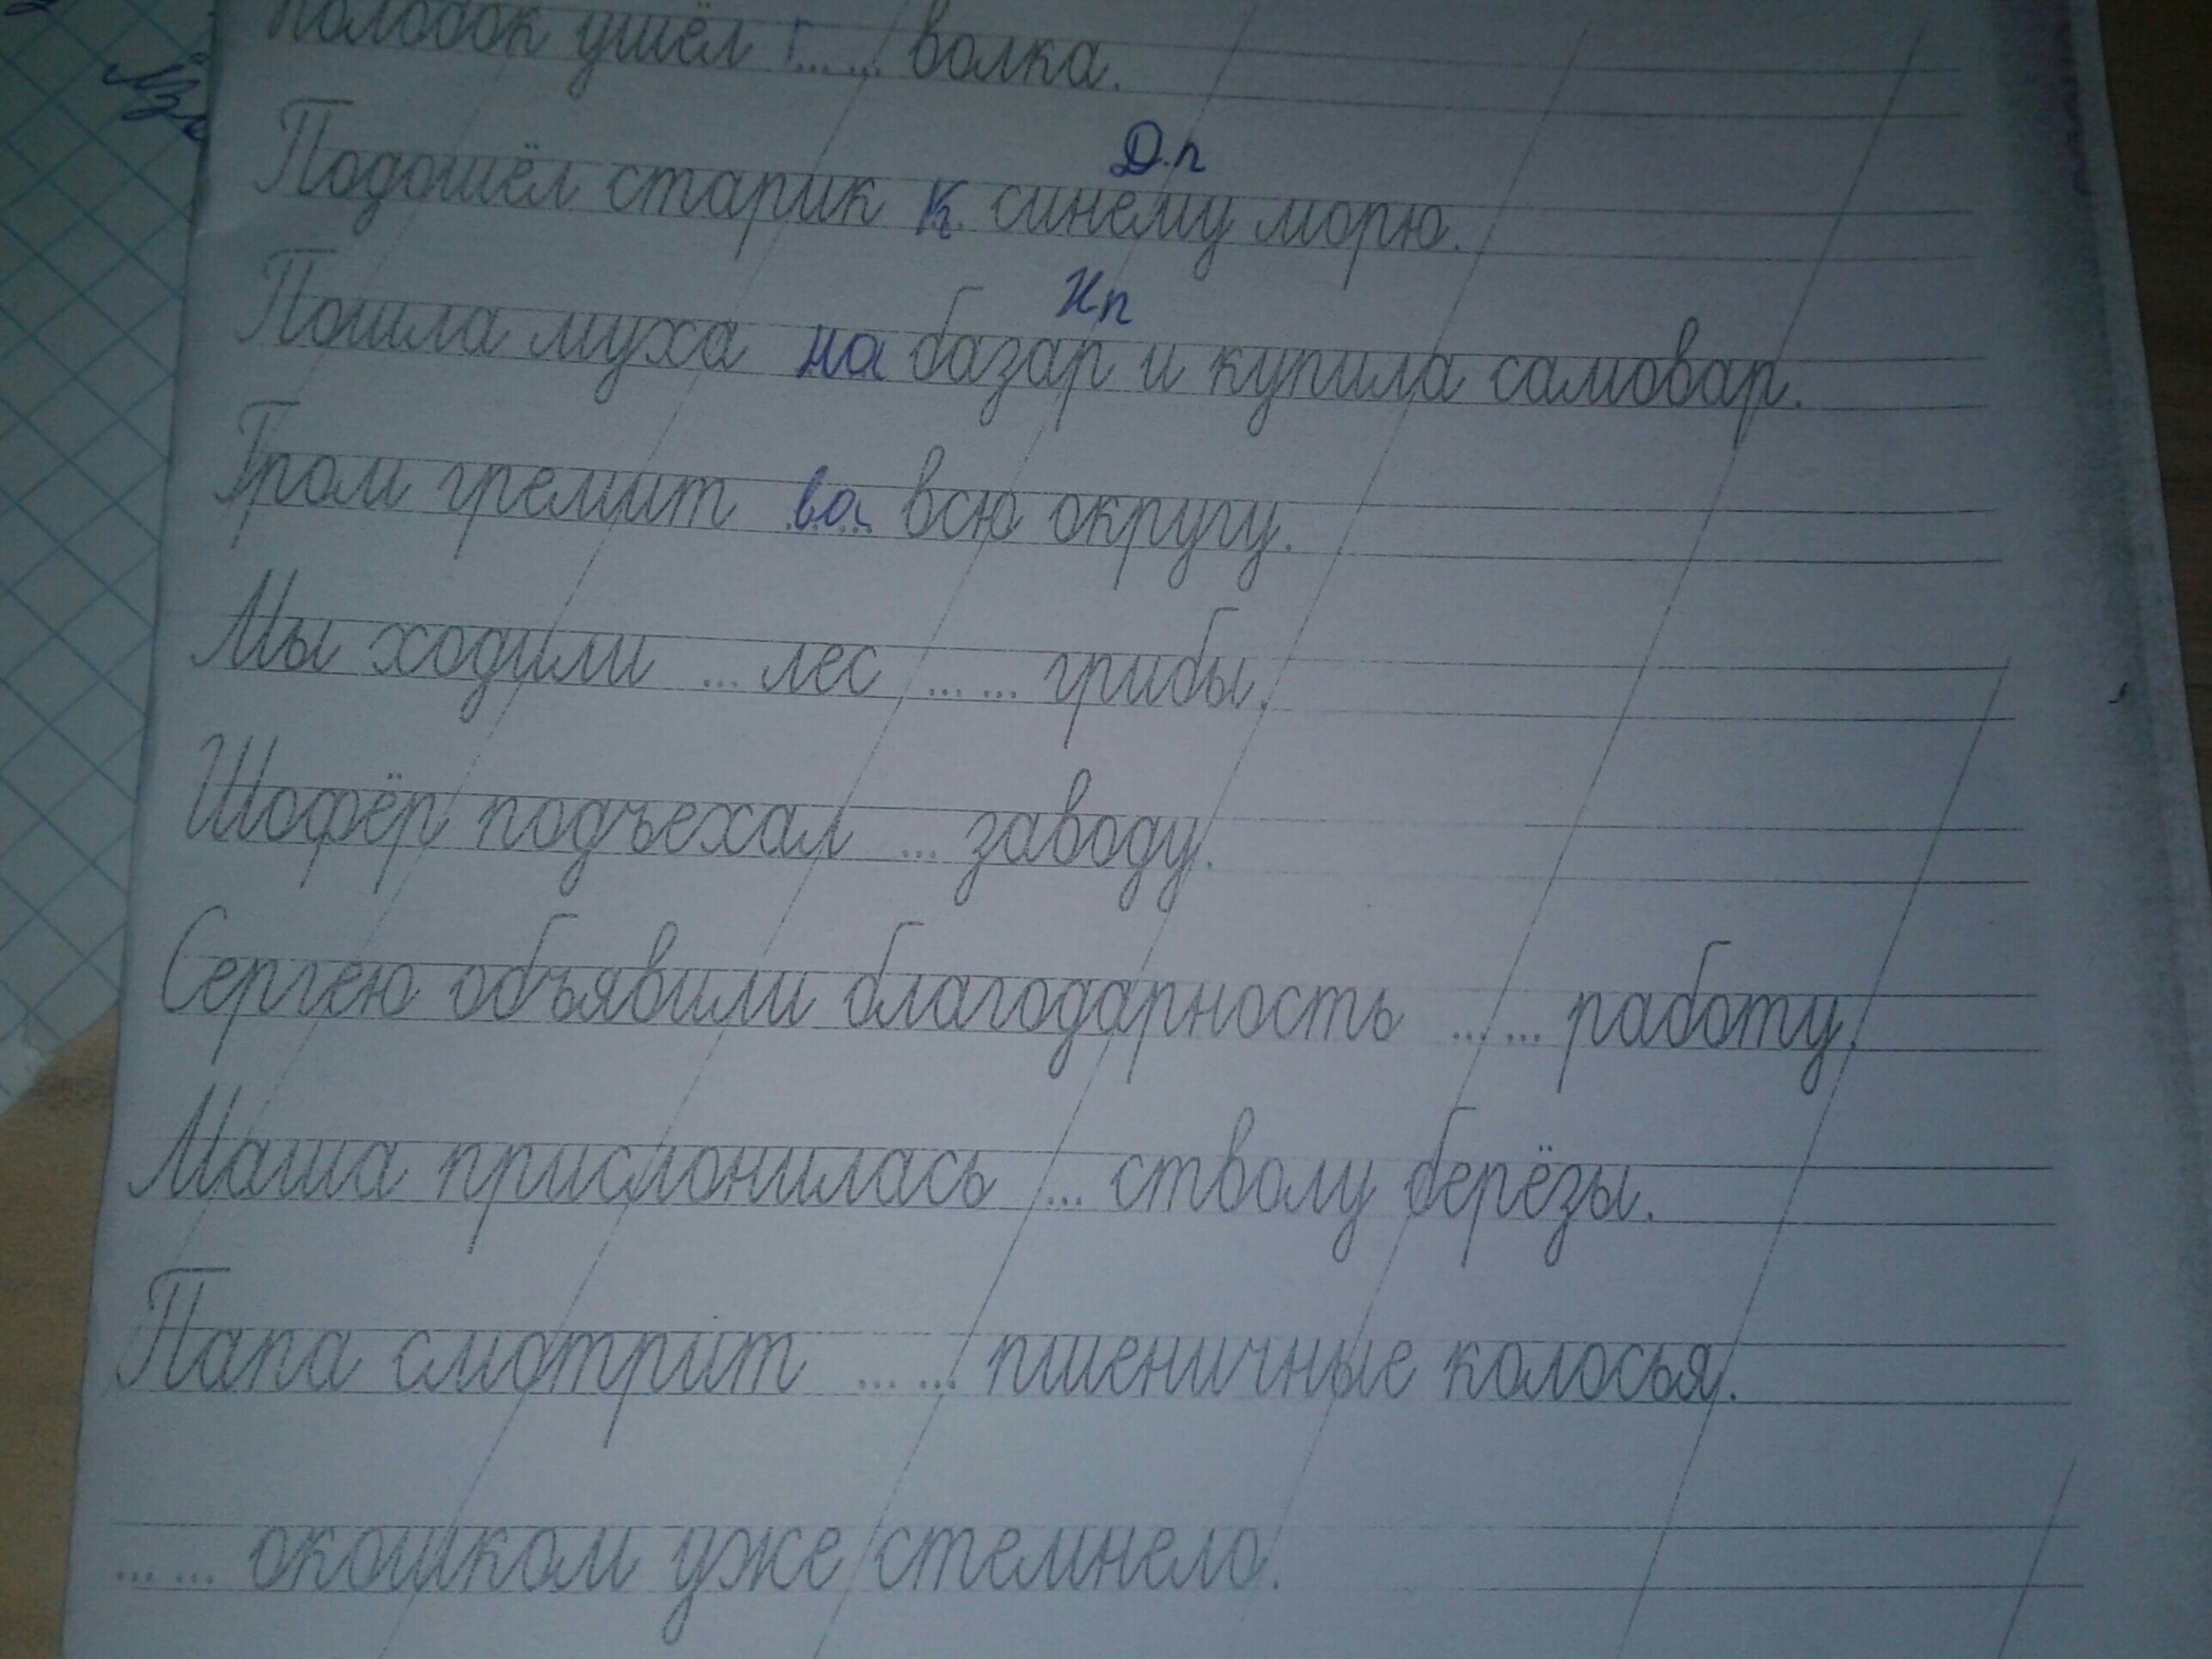 Колобок ушёл г... ... волка.
Д.п
Подошёл старик к синему морю.
Ип
Пошла муха на базар и купила самовар.
Гром гремит во всю округу.
Мы ходили ... лес ... ... грибы.
Шофёр подъехал ... заводу.
Сергею объявили благодарность ... ... работу.
Маша прислонилась ... стволу берёзы.
Папа смотрит ... ... пшеничные колосья.
... ... окошком уже стемнело.